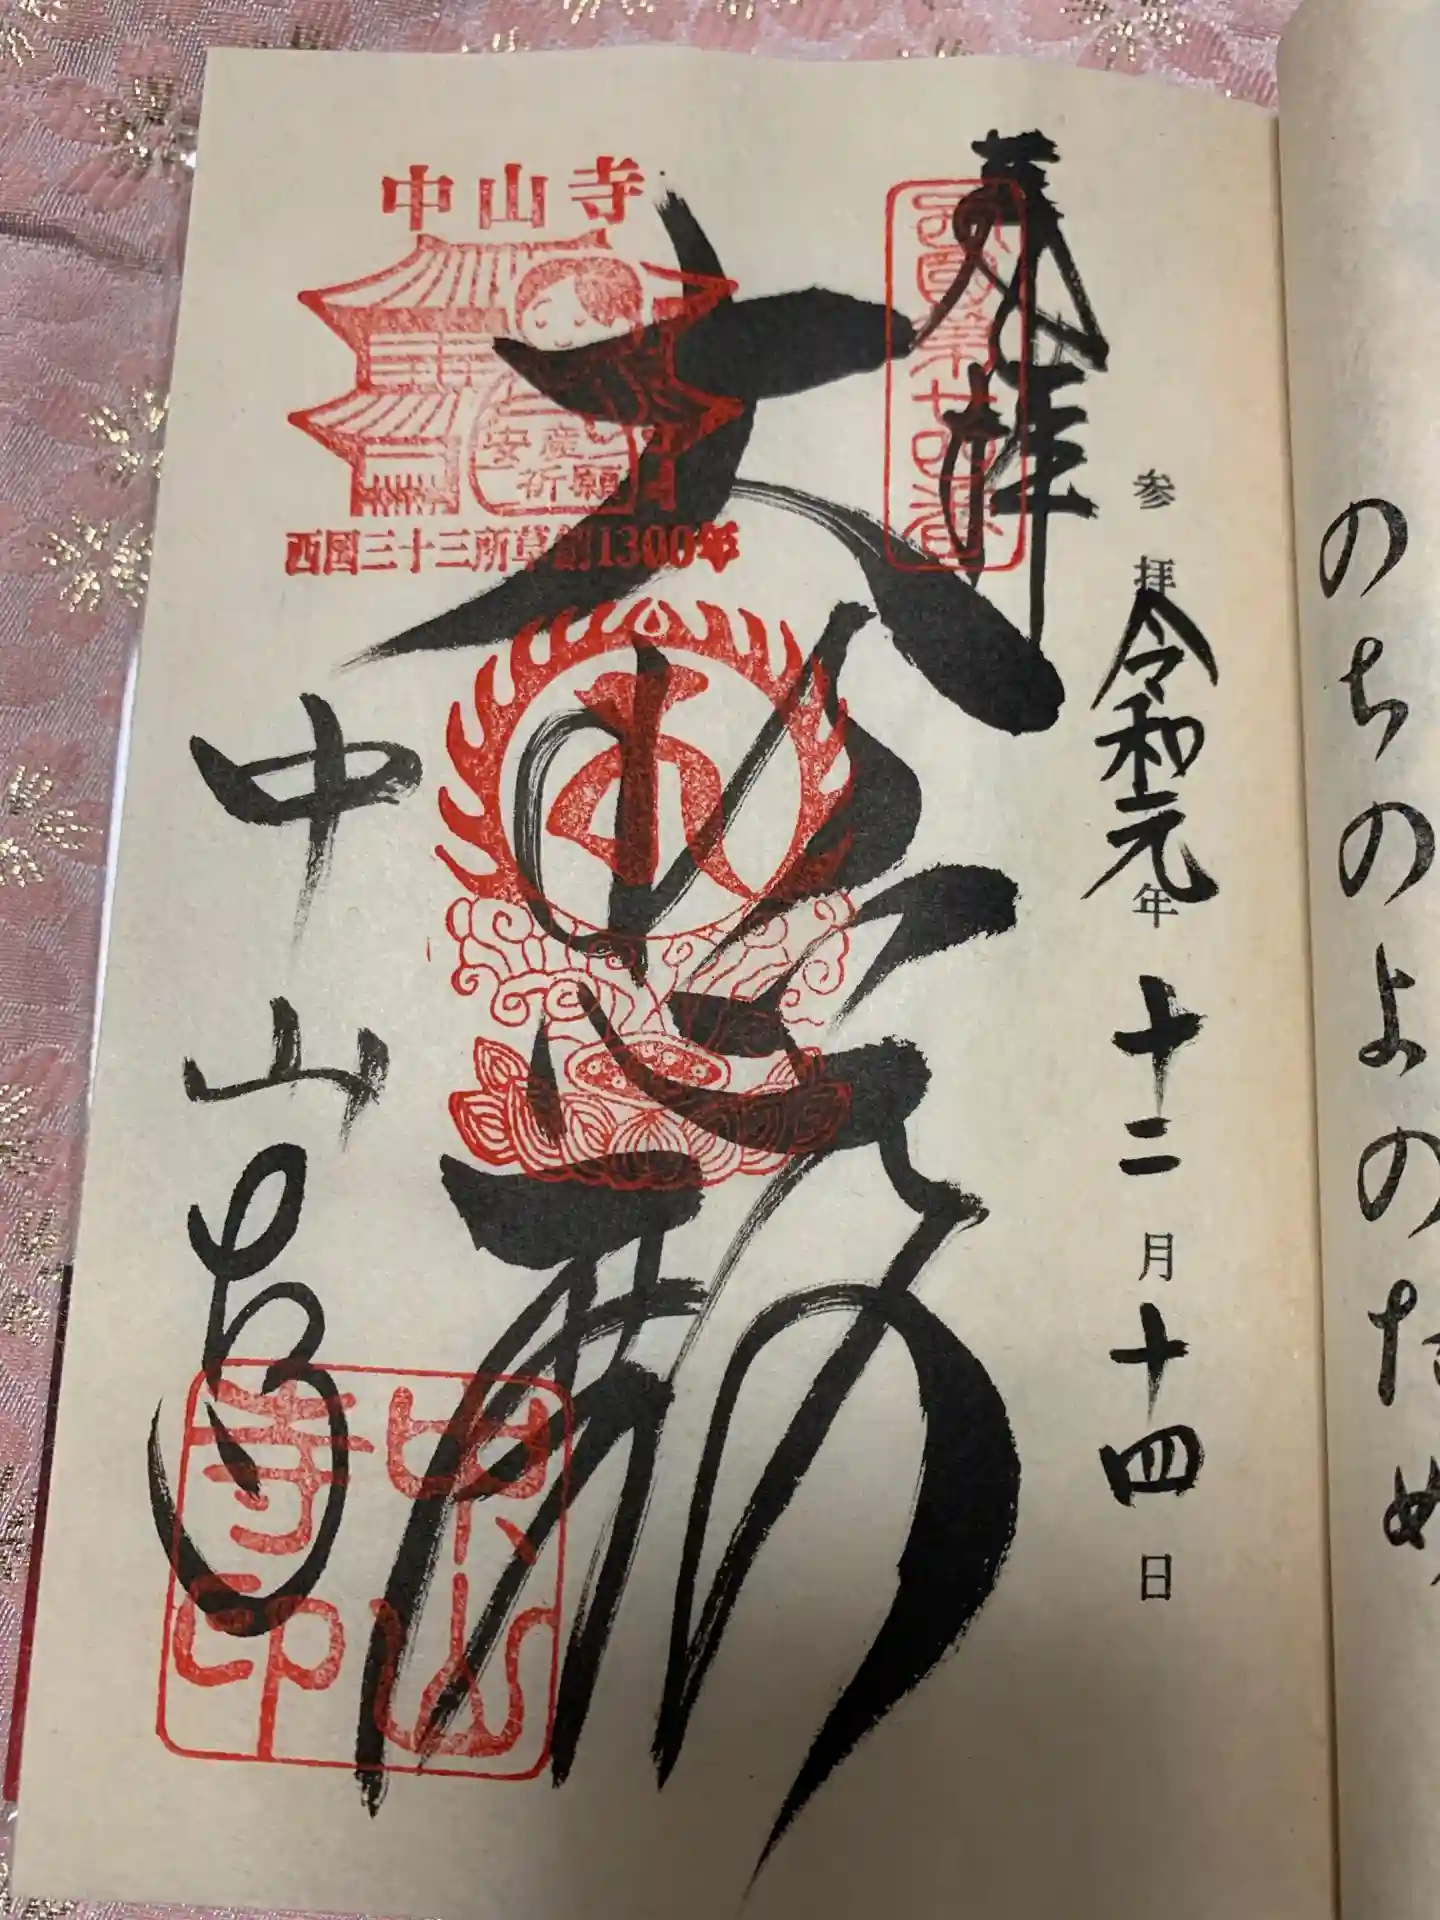 のちのよのため
奉拝
西国第廿四番
参拝 令和元年 十二月 十四日
大悲殿
中山寺
安産
祈願
西国三十三所草創1300年
中山寺
中山
寺印